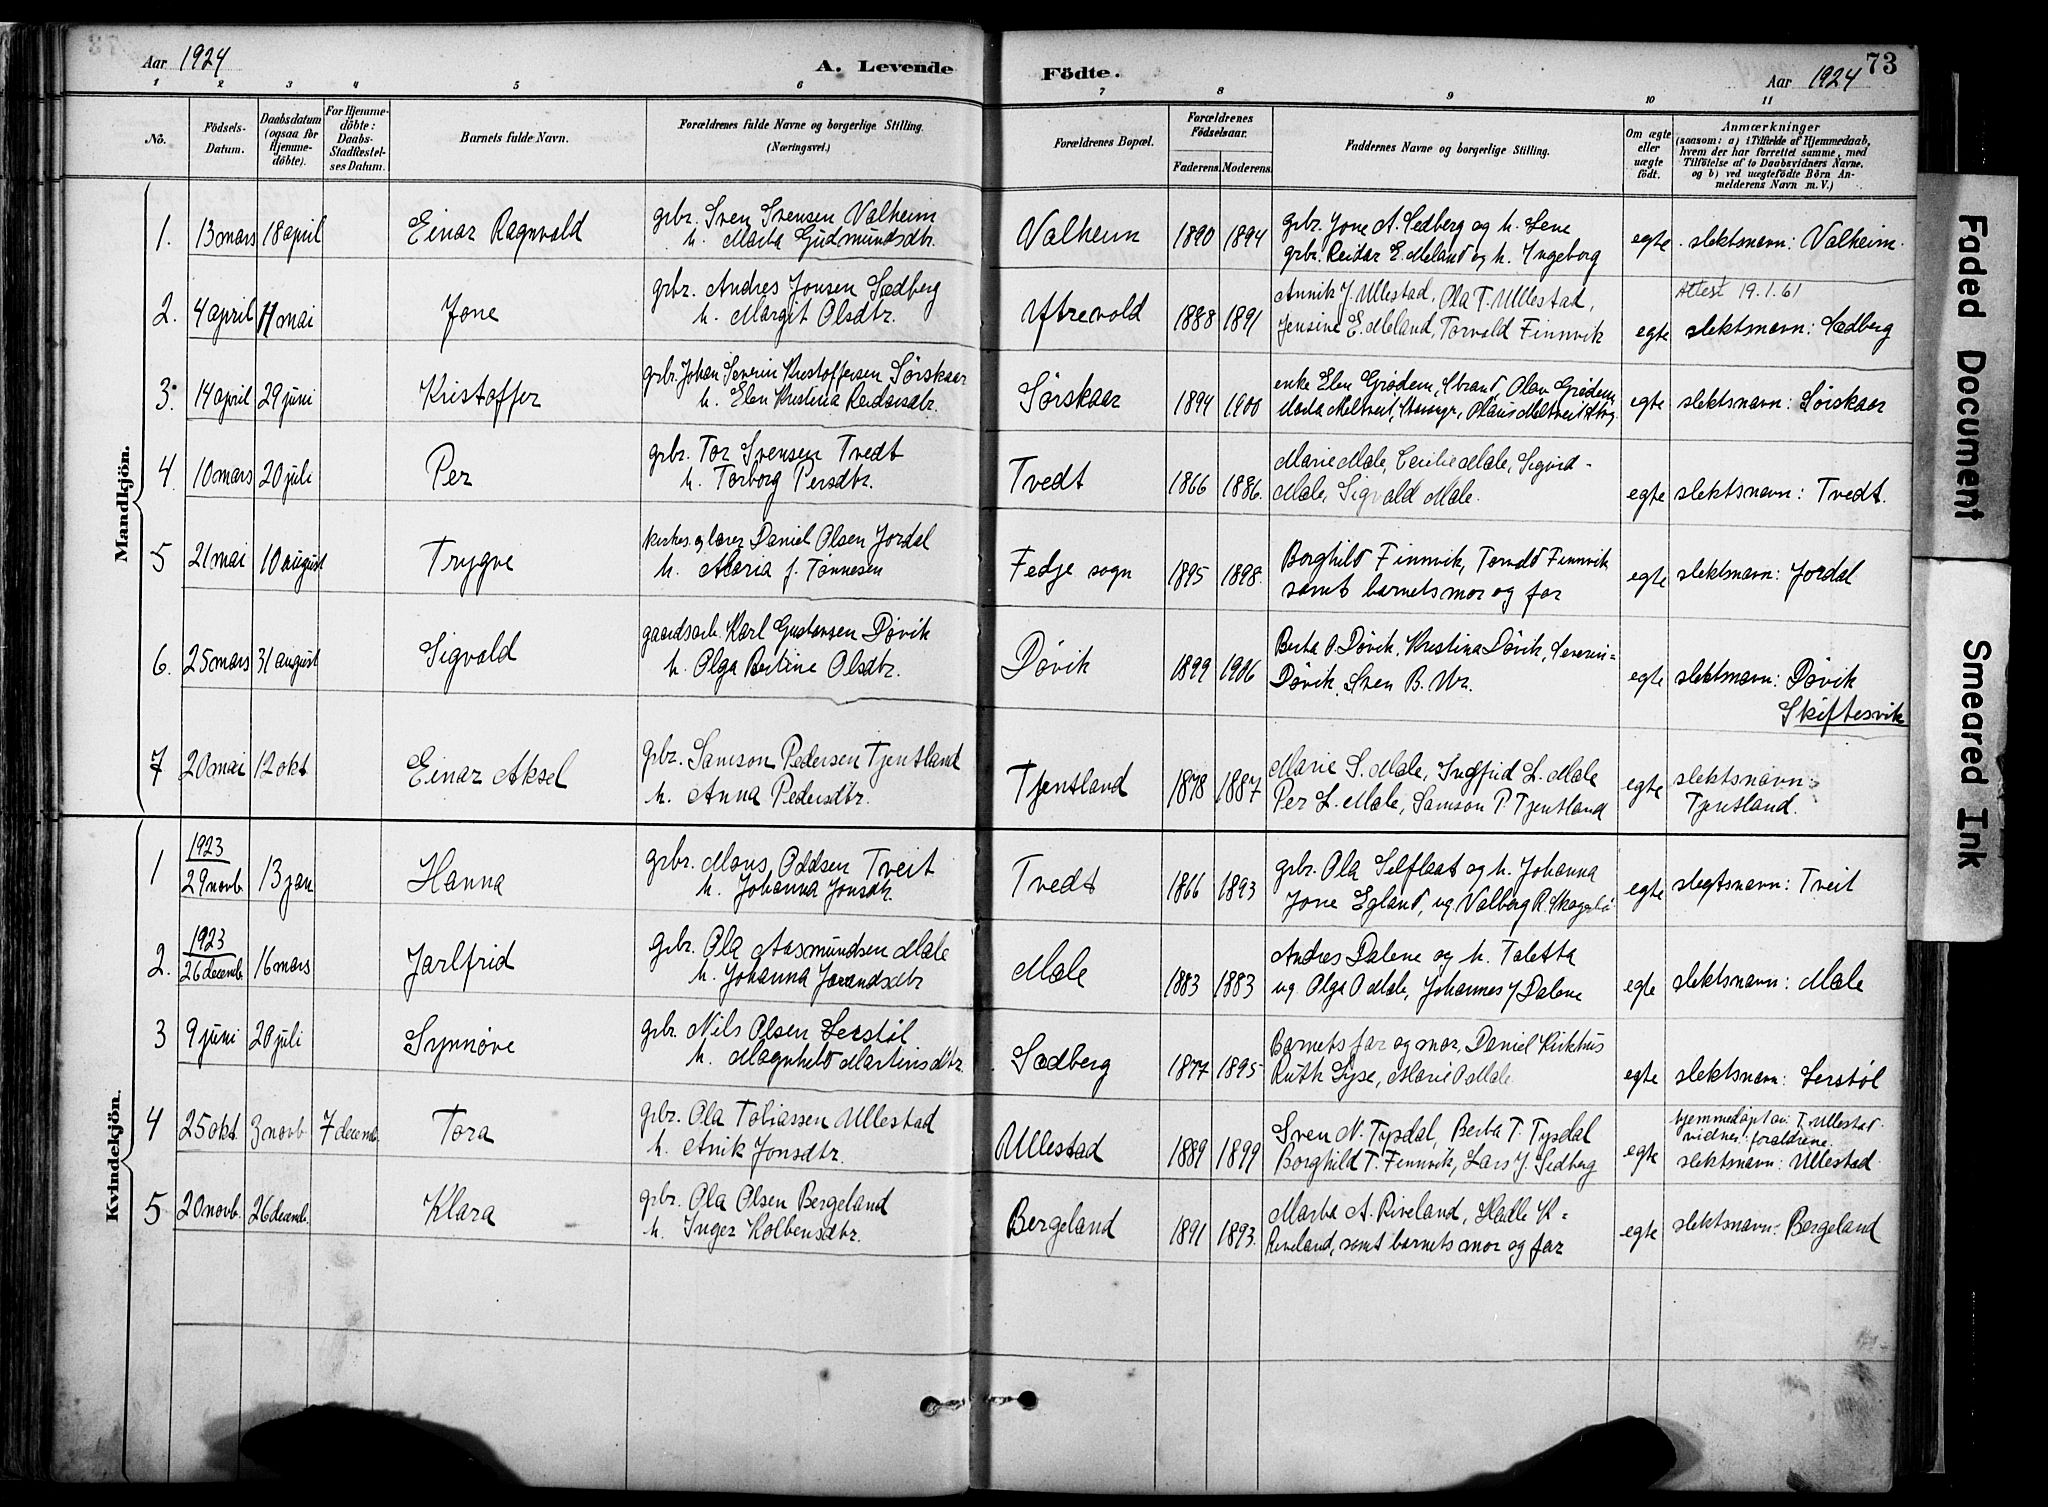 Aar 1924
A. Levende
Födte.
Aar 1924
73
1 2 3 4 5 6 7 8 9 10 11
No.
Födsels-Datum.
Daabsdatum (ogsaa for Hjemme-döbte).
For Hjemme-döbte: Daabs-Stadfæstel-ses Datum.
Barnets fulde Navn.
Forældrenes fulde Navne og borgerlige Stilling.
(Næringsvei.)
Forældrenes Bopæl.
Forældrenes Födselsaar.
Faderens. Moderens.
Faddernes Navne og borgerlige Stilling.
Om ægte eller uægte födt.
Anmærkninger
(saasom: a) i Tilfælde af Hjemmedaab,
hvem der har forrettet samme, med
Tilföielse af to Daabsvidners Navne,
og b) ved uægtefödte Börn An-
melderens Navn m. V.)
Mandkjön.
1. 13 mars 18 april Einar Ragnvald grbr. Sven Svensen Valheim
h. Marta Gudmundsdtr. Valheim 1890 1894 grbr. Jone A. Sedberg og h. Lene
grbr. Reidar E. Meland og h. Ingeborg egte slektsnavn: Valheim.
2. 4 april 11 mai Jone grbr. Andres Jonsen Sædberg
h. Margit Olsdtr. Ytrevold 1888 1891 Annik J. Ullestad, Ola T. Ullestad,
Jensine E. Meland, Torvald Finnvik egte Attest 19.1.61
slektsnavn: Sædberg
3. 14 april 29 juni Kristoffer grbr. Johan Severin Kristoffersen Sørskaar
h. Elen Kristina Reidarsdtr. Sørskaar 1894 1900 enke Elen Grødem, Strand, Olav Grødem
egte slektsnavn: Sørskaar
4. 10 mars 20 juli Per grbr. Tor Svensen Tvedt
h. Torborg Persdtr. Tvedt 1866 1886. Marie Mæle, Cecilie Mæle, Sigvid
Mæle, Sigvald Mæle. egte slektsnavn: Tvedt.
5 21 mai 10 august Trygve kirkes. og lærer Daniel Olsen Jordal
h. Maria f. Tønnesen Fedje sogn 1895 1898. Borghild Finnvik, Torvald Finnvik
samt barnets mor og far egte slektsnavn: Jordal
6. 25 mars 31 august Sigvald gaardsarb. Karl Gustavsen Døvik
h. Olga Bertine Olsdtr. Døvik 1899 1906 Berta O. Døvik, Kristina Døvik, Severin=
Døvik, Sven B. Ur. egte slektsnavn: Døvik
Skiftesvik
7 20 mai 12 okt Einar Aksel grbr. Samson Pedersen Tjentland
h. Anna Pedersdtr. Tjentland 1878 1887 Marie S. Mæle, Ingfrid L. Mæle
Per L. Mæle, Samson P. Tjentland egte slektsnavn:
Tjentland.
Kvindekjön.
1 1923
29 novb. 13 jan Hanna grbr. Mons Oddsen Tveit
h. Johanna Jonsdtr. Tvedt 1866 1893 grbr. Ola Selflaat og h. Johanna
Jone Egland, ug. Valborg R. egte slegtsnavn: Tveit
2. 1923
26 decemb 16 mars Jarlfrid grbr. Ola Aasmundsen Mæle
h. Johanna Jørandsdtr Mæle 1883 1883 Andres Dalene og h. Taletta
ug. Olga O Mæle, Johannes J Dalene egte slektsnavn: Mæle
3 9 juni 20 juli Synnøve grbr. Nils Olsen Lerstøl
h. Magnhild Martinsdtr. Sædberg 1877 1895 Barnets far og mor, Daniel Kirkhus
Ruth Lyse, Marie O Mæle egte slektsnavn: Lerstøl
4 25 okt. 3 novb 7 decemb. Tora grbr. Ola Tobiassen Ullestad
h. Anik Jonsdtr. Ullestad 1889 1899 Sven N. Tysdal, Berta T. Tysdal
Borghild T. Finnvik, Lars J. Sedberg egte hjemmedøpt av T. Ullestad
vidner: foraldrene.
slektsnavn: Ullestad
5 20 novb. 26 decemb. Klara grbr. Ola Olsen Bergeland
h. Inger Kolbensdtr. Bergeland 1891 1893. Marta A. Riveland, Halle K=
Riveland, samt barnets mor og far egte slektsnavn: Bergeland
Faded Document
Smeared Ink